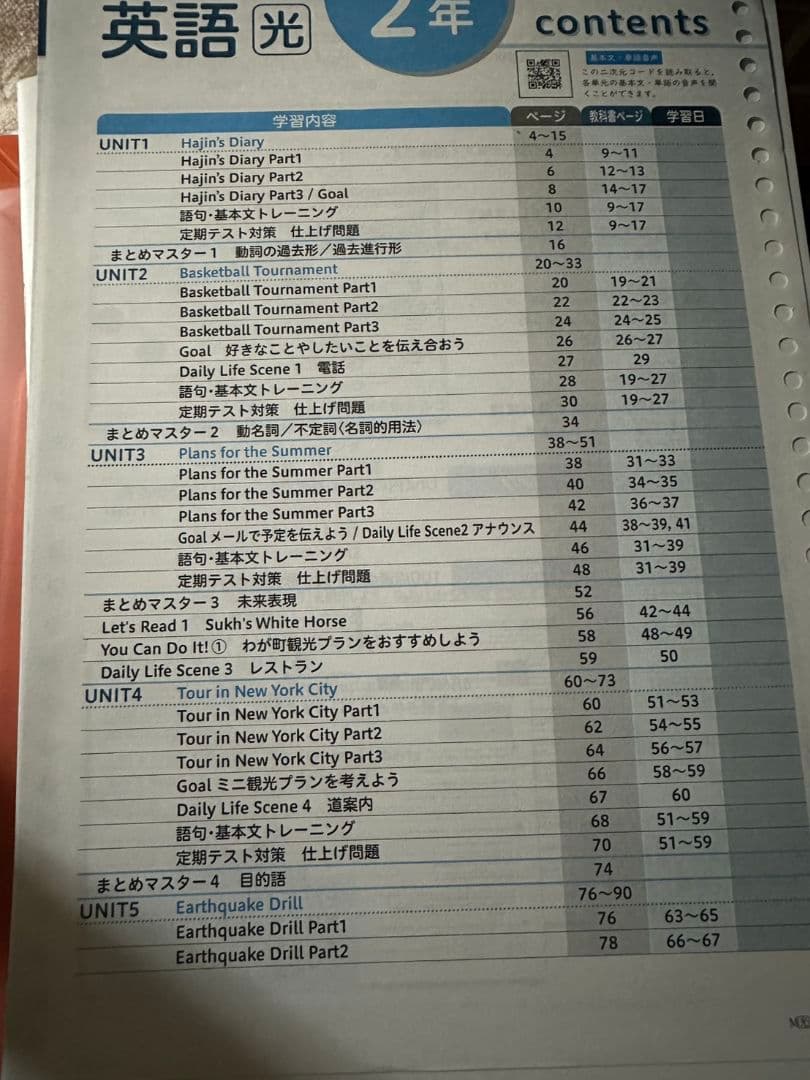 英語 光 2年 contents
基本文・単語音声
この二次元コードを読み取ると、
各単元の基本文・単語の音声を聞
くことができます。
学習内容 ページ 教科書ページ 学習日
UNIT1 Hajin's Diary 4〜15
Hajin's Diary Part1 4 9〜11
Hajin's Diary Part2 6 12〜13
Hajin's Diary Part3 / Goal 8 14〜17
語句・基本文トレーニング 10 9〜17
定期テスト対策 仕上げ問題 12 9〜17
まとめマスター1 動詞の過去形／過去進行形 16
UNIT2 Basketball Tournament 20〜33
Basketball Tournament Part1 20 19〜21
Basketball Tournament Part2 22 22〜23
Basketball Tournament Part3 24 24〜25
Goal 好きなことやしたいことを伝え合おう 26 26〜27
Daily Life Scene 1 電話 27 29
語句・基本文トレーニング 28 19〜27
定期テスト対策 仕上げ問題 30 19〜27
まとめマスター2 動名詞／不定詞〈名詞的用法〉 34
UNIT3 Plans for the Summer 38〜51
Plans for the Summer Part1 38 31〜33
Plans for the Summer Part2 40 34〜35
Plans for the Summer Part3 42 36〜37
Goal メールで予定を伝えよう / Daily Life Scene2 アナウンス 44 38〜39, 41
語句・基本文トレーニング 46 31〜39
定期テスト対策 仕上げ問題 48 31〜39
まとめマスター3 未来表現 52
Let's Read 1 Sukh's White Horse 56 42〜44
You Can Do It!① わが町観光プランをおすすめしよう 58 48〜49
Daily Life Scene 3 レストラン 59 50
UNIT4 Tour in New York City 60〜73
Tour in New York City Part1 60 51〜53
Tour in New York City Part2 62 54〜55
Tour in New York City Part3 64 56〜57
Goal ミニ観光プランを考えよう 66 58〜59
Daily Life Scene 4 道案内 67 60
語句・基本文トレーニング 68 51〜59
定期テスト対策 仕上げ問題 70 51〜59
まとめマスター4 目的語 74
UNIT5 Earthquake Drill 76〜90
Earthquake Drill Part1 76 63〜65
Earthquake Drill Part2 78 66〜67